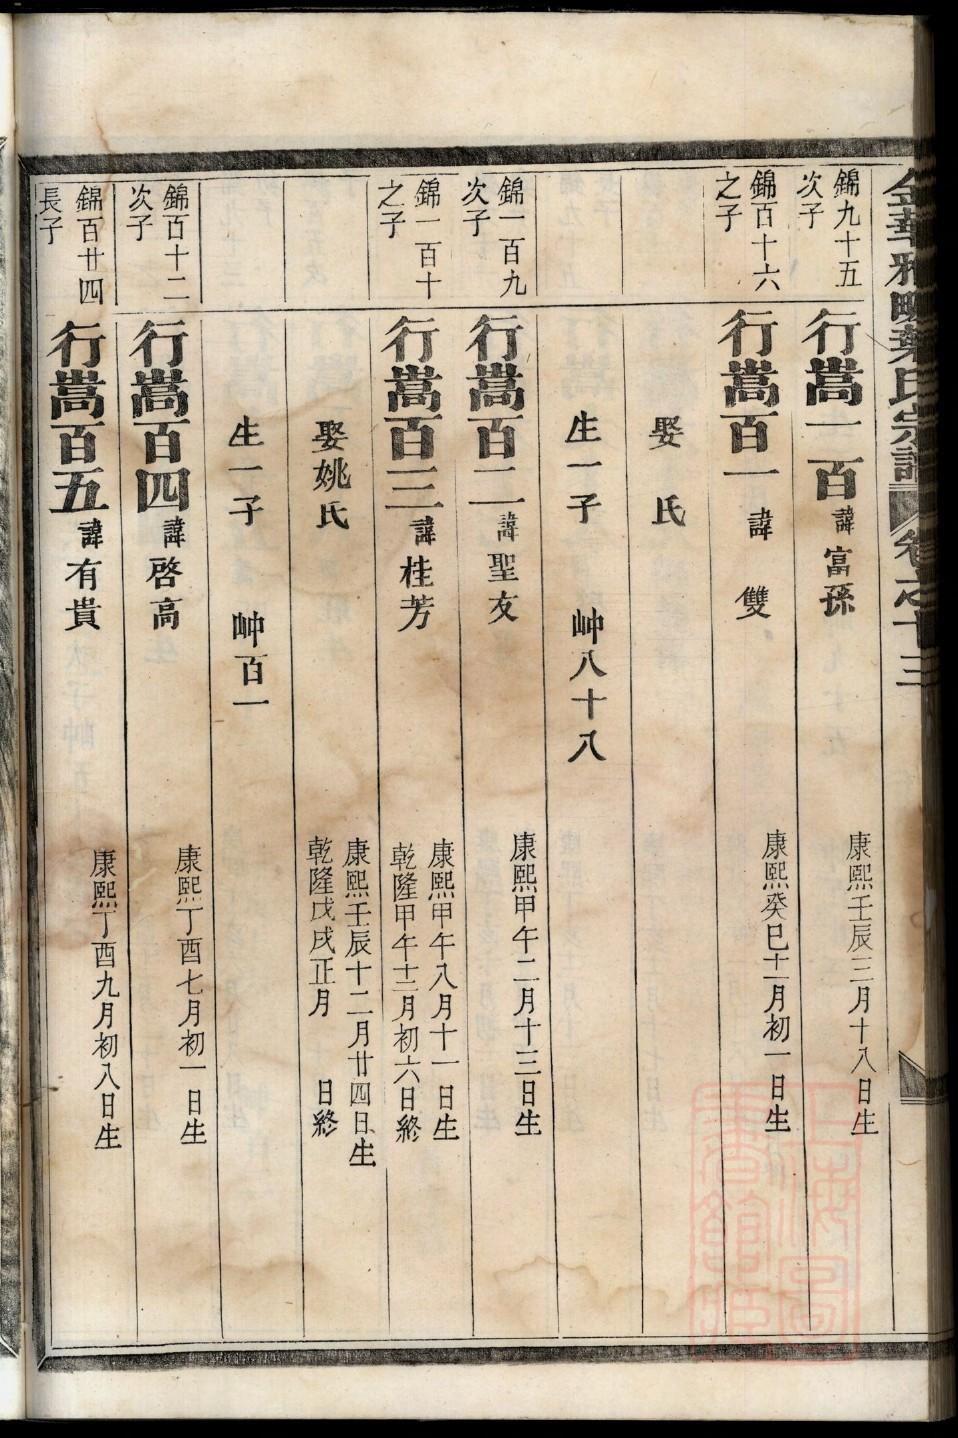 金華雅畈葉氏宗譜 卷之十三
錦九十五次子 行嵩一百 諱富孫 康熙壬辰三月十八日生
錦百十六之子 行嵩百一 諱 雙 康熙癸巳十一月初一日生
娶 氏
生一子 𡶴八十八
錦一百九次子 行嵩百二 諱聖友 康熙甲午二月十三日生
錦一百十之子 行嵩百三 諱桂芳 康熙甲午八月十一日生
乾隆甲午十二月初六日終
娶姚氏 康熙壬辰十二月廿四日生
乾隆戊戌正月 日終
生一子 𡶴百一
錦百十二次子 行嵩百四 諱啓高 康熙丁酉七月初一日生
錦百廿四長子 行嵩百五 諱有貴 康熙丁酉九月初八日生
上海圖書館藏